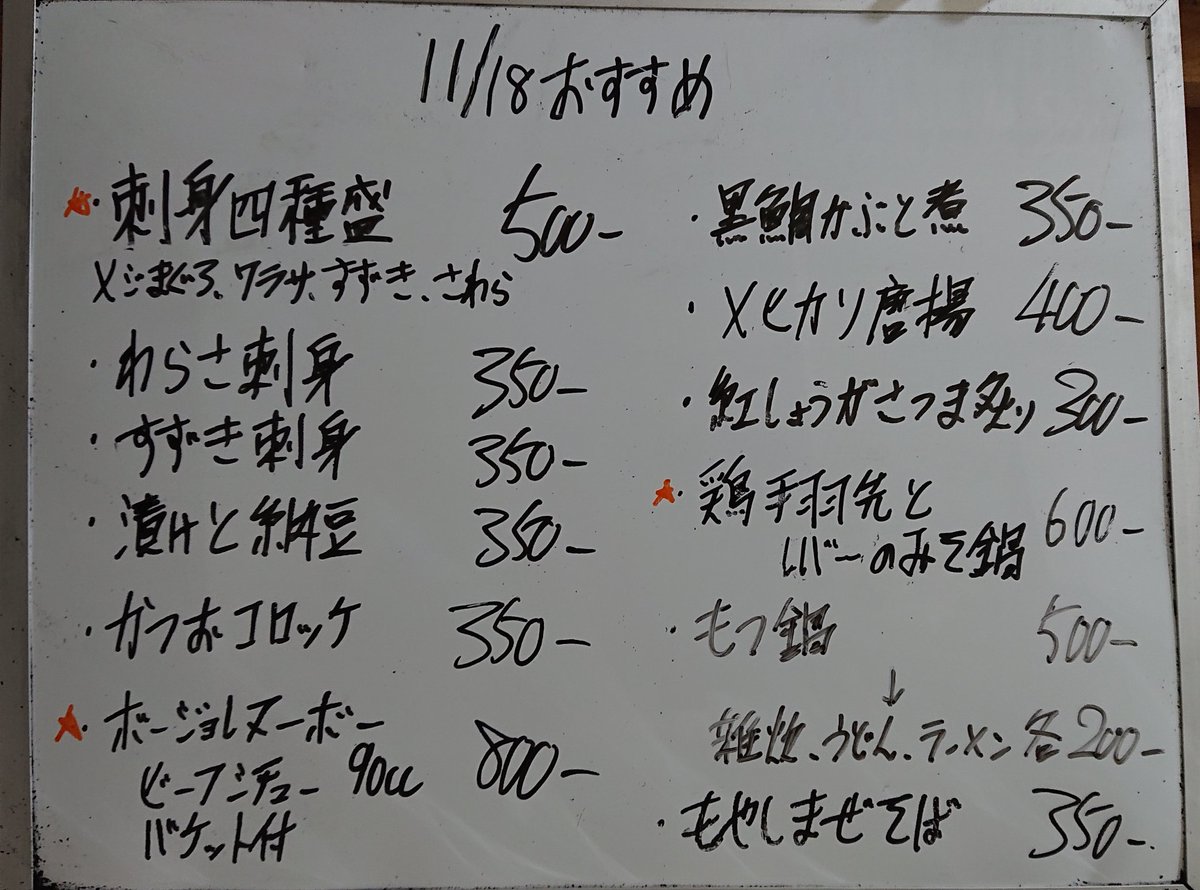 11/18おすすめ
★・刺身四種盛 500-
メジまぐろ、ワラサ、すずき、さわら
・わらさ刺身 350-
・すずき刺身 350-
・漬けと納豆 350-
・かつおコロッケ 350-
★・ボージョレヌーボー
ビーフシチュー 90cc 800-
バケット付
・黒鯛かぶと煮 350-
・メヒカリ唐揚 400-
・紅しょうがさつま炙り 300-
★・鶏手羽先と
レバーのみそ鍋 600-
・もつ鍋 500-
↓
雑炊、うどん、ラーメン各200-
・もやしまぜそば 350-